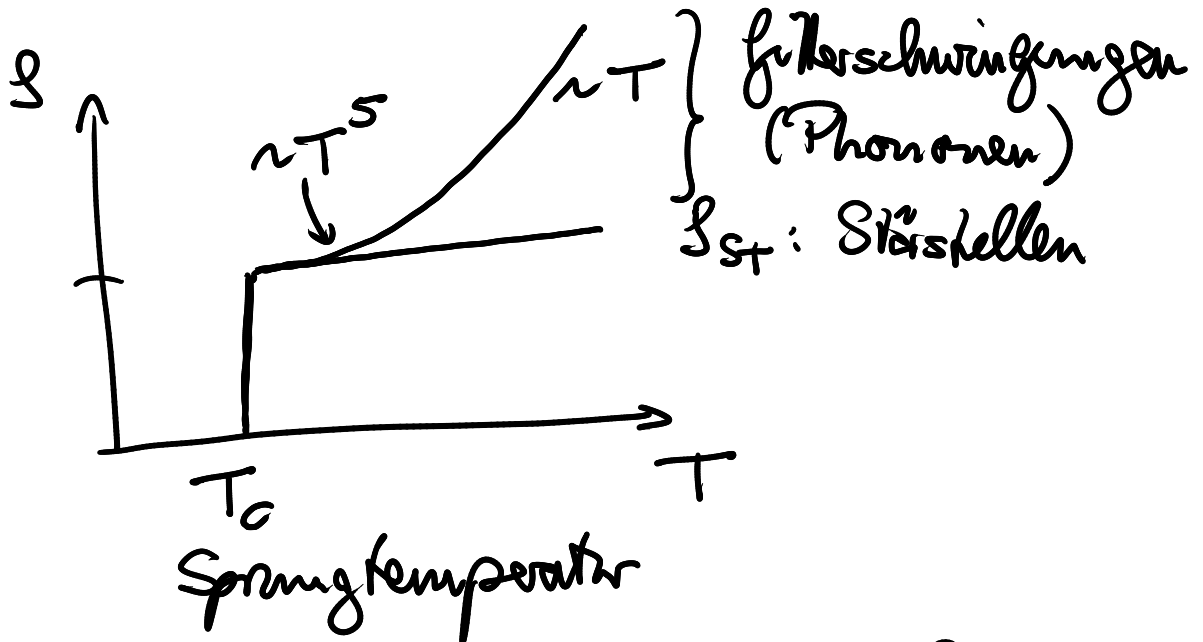 ρ
~T⁵
~T } Gitterschwingungen
(Phononen)
ρ_ST : Störstellen
T_c
T
Sprungtemperatur